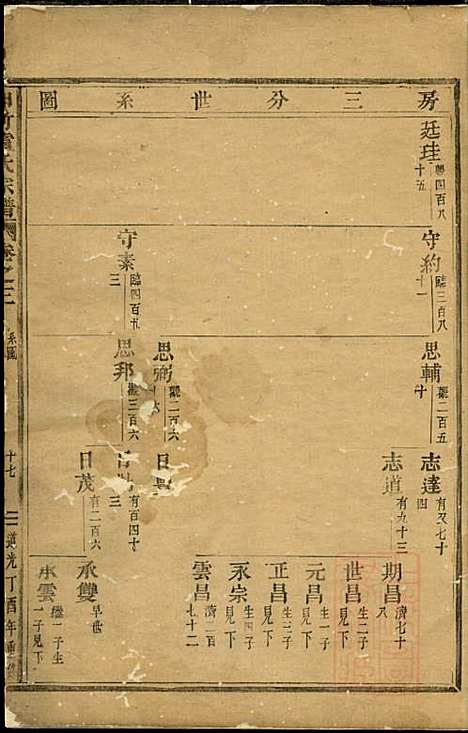 房三分世系圖
廷珪
粤四百八十五
守約
臨三百八十一
守素
臨四百九三
思輔
觀二百五十
思弼
觀二百六十六
思邦
觀三百六
志達
有又七十四
志道
有九十三
日
日
有百四十三
日茂
有二百六
期昌
濟七十
世昌
生二子見下
元昌
生一子見下
正昌
生三子見下
永宗
生四子見下
雲昌
濟二百七十二
承雙
早世
承雲
繼子生一子見下
氏宗譜
卷之三
系圖
十七
道光丁酉年重